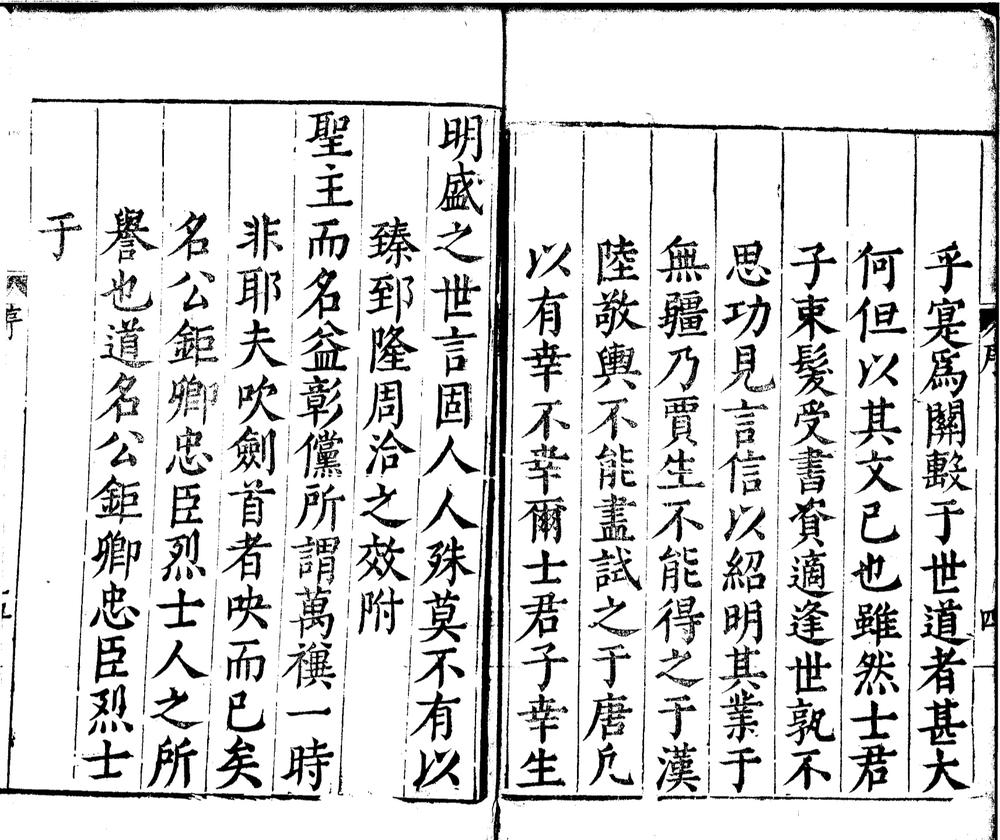 乎寔爲關斁于世道者甚大
何但以其文已也雖然士君
子束髮受書資適逢世孰不
思功見言信以紹明其業于
無疆乃賈生不能得之于漢
陸敬輿不能盡試之于唐凡
以有幸不幸爾士君子幸生
明盛之世言固人人殊莫不有以
臻郅隆周洽之效附
聖主而名益彰儻所謂萬禩一時
非耶夫吹劍首者吷而已矣
名公鉅卿忠臣烈士人之所
譽也道名公鉅卿忠臣烈士
于
序
四
五